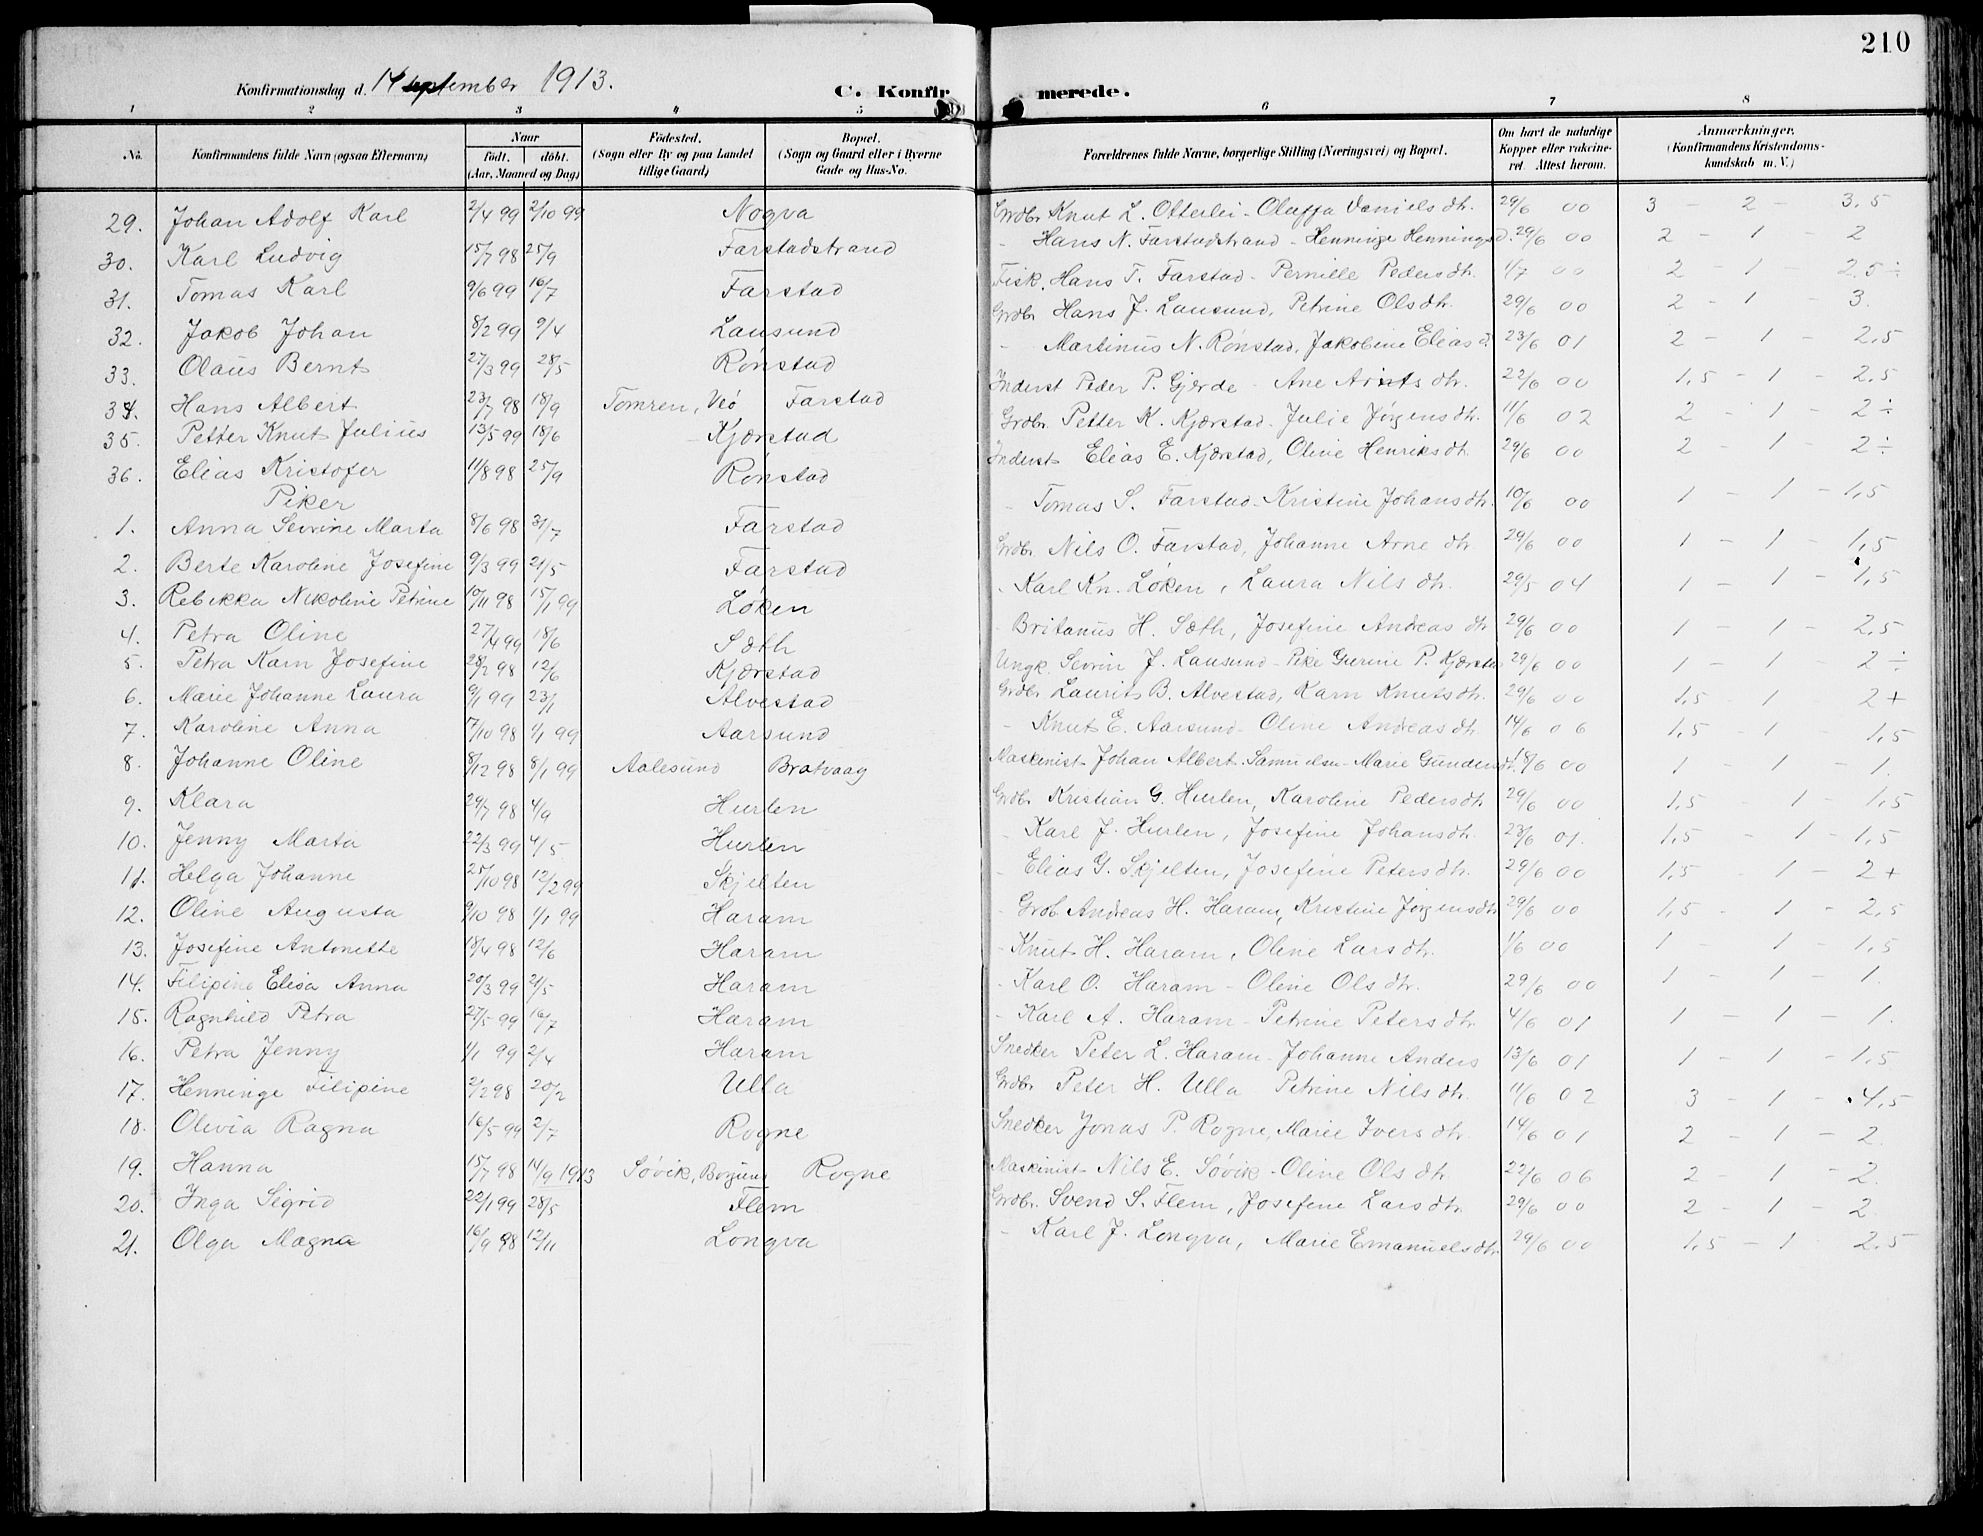 210
Konfirmationsdag d. 14 september 1913.
C. Konfirmerede.
1 2 3 4 5 6 7 8
No. Konfirmandens fulde Navn (ogsaa Efternavn) Naar födt. döbt. (Aar, Maaned og Dag) Födested. (Sogn eller By og paa Landet tillige Gaard) Bopæl. (Sogn og Gaard eller i Byerne Gade og Hus-No. Forældrenes fulde Navne, borgerlige Stilling (Næringsvei) og Bopæl. Om havt de naturlige Kopper eller vaccineret. Attest herom. Anmærkninger. (Konfirmandens Kristendomskundskab m. V.)
29. Johan Adolf Karl 2/4 99 2/10 99 Nogva Grdbr. Knut L. Otterlei - Oluffa Daniels dtr. 29/6 00 3 - 2 - 3,5
30. Karl Ludvig 15/7 98 25/9 Farstadstrand - Hans N. Farstadstrand - Henninge Hennings d. 29/6 00 2 - 1 - 2
31. Tomas Karl 9/6 99 16/7 Farstad Fisk. Hans T. Farstad - Pernille Peders dtr. 1/7 00 2 - 1 - 2,5 ÷
32. Jakob Johan 8/2 99 9/4 Lausund Grdbr Hans J. Lausund, Petrine Ols dtr. 29/6 00 2 - 1 - 3.
33. Olaus Bernt 27/3 99 28/5 Rønstad - Martinus N. Rønstad, Jakobine Elias d. 23/6 01 2 - 1 - 2,5
34. Hans Albert 23/7 98 18/9 Tomren, Veö Farstad Inderst Peder P. Gjerde - Ane Arnts dtr. 22/6 00 1,5 - 1 - 2,5
35. Petter Knut Julius 13/5 99 18/6 Kjærstad Grdbr. Petter K. Kjærstad - Julie Jørgens dtr. 11/6 02 2 - 1 - 2 ÷
36. Elias Kristofer 11/8 98 25/9 Rønstad Inderst Elias E. Kjærstad, Oline Henriks dtr. 29/6 00 2 - 1 - 2 ÷
Piker
1. Anna Sevrine Marta 8/6 98 31/7 Farstad - Tomas S. Farstad - Kristine Johans dtr. 10/6 00 1 - 1 - 1,5
2. Berte Karoline Josefine 9/3 99 21/5 Farstad Grdbr. Nils O. Farstad, Johanne Arne dtr 29/6 00 1 - 1 - 1,5
3. Rebikka Nikoline Petrine 10/11 98 15/1 99 Løken - Karl Kn. Løken, Laura Nils dtr. 29/5 04 1 - 1 - 1,5
4. Petra Oline 27/4 99 18/6 Sæth - Britanus H. Sæth, Josefine Andreas dtr 29/6 00 1 - 1 - 2,5
5. Petra Karn Josefine 28/2 98 12/6 Kjærstad Ungk. Sevrin J. Lausund - Pike Gurine P. Kjærstad 29/6 00 1 - 1 - 2 ÷
6. Marie Johanne Laura 9/1 99 23/1 Alvestad Grdbr Laurits B. Alvestad, Karn Knuts dtr. 29/6 00 1,5 1 2 +
7. Karoline Anna 17/10 98 1/1 99 Aarsund - Knut E. Aarsund - Oline Andreas dtr 14/6 06 1,5 - 1 - 1,5
8. Johanne Oline 8/12 98 8/1 99 Aalesund Bratvaag Maskinist Johan Albert Samuelsen - Marie Gunders dtr. 18/6 00 1 - 1 - 1.
9. Klara 29/7 98 4/9 Hurlen Grdbr Kristian G. Hurlen, Karoline Peders dtr 29/6 00 1,5 - 1 - 1,5
10. Jenny Marta 22/3 99 4/5 Hurlen - Karl J. Hurlen, Josefine Johans dtr. 23/6 01. 1,5 - 1 - 1,5
11. Helga Johanne 25/10 98 12/2 99 Skjelten - Elias G. Skjelten, Josefine Peters dtr. 29/6 00 1,5 - 1 - 2 +
12. Oline Augusta 9/10 98 1/1 99 Haram - Grdb. Andreas H. Haram, Kristine Jørgens dtr 29/6 00 1,5 - 1 - 2,5
13. Josefine Antonette 18/4 98 12/6 Haram - Knut H. Haram, Oline Lars dtr. 1/6 00 1 - 1 - 1,5
14. Filipine Elisa Anna 20/3 99 21/5 Haram - Karl O. Haram - Oline Ols dtr. 29/6 00 1 - 1 - 1.
15. Ragnhild Petra 27/5 99 16/7 Haram - Karl A. Haram - Petrine Peters dtr 4/6 01 1 - 1 - 1.
16. Petra Jenny 1/1 99 2/4 Haram Snedker Peter L. Haram - Johanne Anders 13/6 01 1 - 1 - 1,5
17. Henninge Filipine 2/2 98 20/2 Ulla Grdbr. Peter H. Ulla Petrine Nils dtr. 11/6 02 3 - 1 - 4,5
18. Olivia Ragna 16/5 99 2/7 Rogne Snedker Jonas P. Rogne, Marie Ivers dtr. 14/6 01 2 - 1 - 2.
19. Hanna 15/7 98 14/9 1913 Søvik, Borgund Rogne Maskinist Nils E. Søvik - Oline Ols dtr 22/6 06 2 - 1 - 2.
20. Inga Sigrid 22/1 99 28/5 Flem Grdbr. Svend S. Flem, Josefine Lars dtr. 29/6 00 2 - 1 - 2
21. Olga Magna 16/9 98 12/11 Longva - Karl J. Longva, Marie Emanuels dtr. 29/6 00 1,5 - 1 2,5